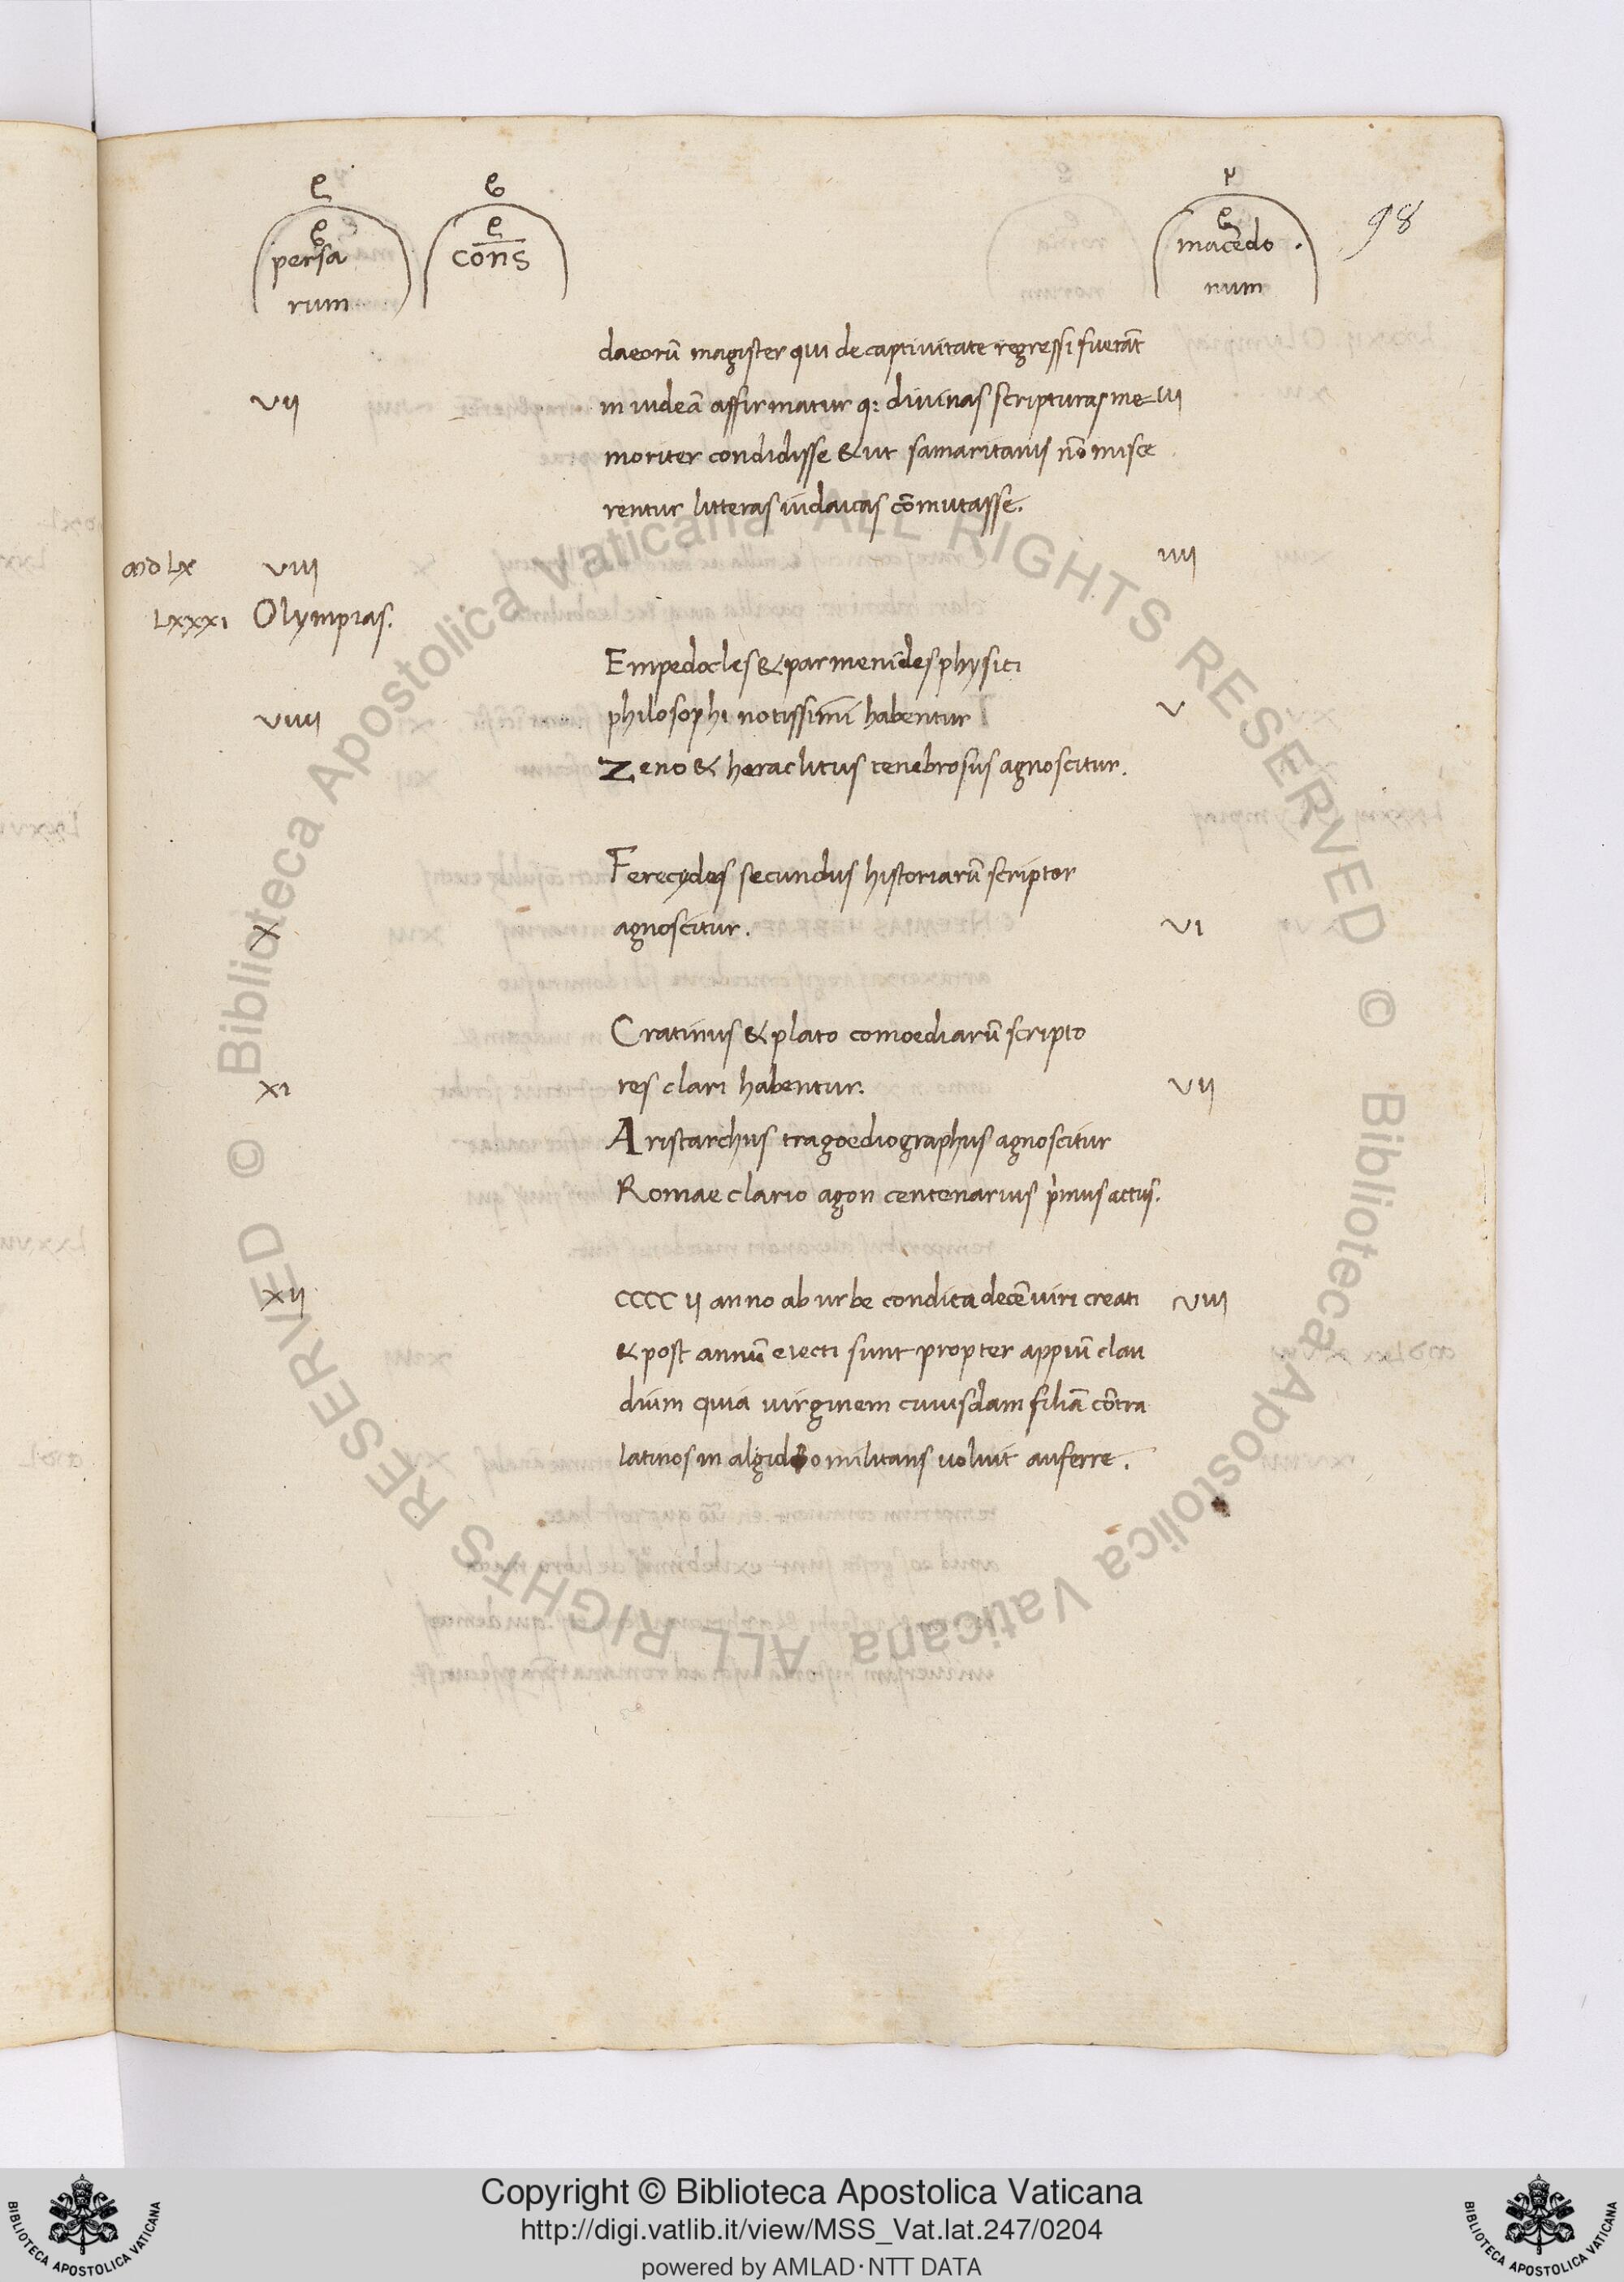 persa
rum
cons
macedo.
num
98
daeorū magister qui de captivitate regressi fuerāt
VII in iudeā affirmatur q: divinas scripturas me= III
moriter condidisse & ut samaritanis nō misce
rentur litteras iudaicas cōmutasse.
LX VIII IIII
LXXXI Olympias.
Empedocles & parmenides physici
VIIII philosophi notissimi habentur V
Zeno & heraclitus tenebrosus agnoscitur.
Ferecydes secundus historiarū scriptor
X agnoscitur. VI
Cratinus & plato comoediarū scripto
XI res clari habentur. VII
Aristarchus tragoediographus agnoscitur
Romae clario agon centenarius primus actus.
XII CCCC II anno ab urbe condita decēviri creati VIII
& post annū eiecti sunt propter appiū clau
dium quia virginem cuiusdam filiā cōtra
latinos in algido militans voluit auferre.
© Biblioteca Apostolica Vaticana ALL RIGHTS RESERVED
© Biblioteca Apostolica Vaticana ALL RIGHTS RESERVED
BIBLIOTECA APOSTOLICA VATICANA
Copyright © Biblioteca Apostolica Vaticana
http://digi.vatlib.it/view/MSS_Vat.lat.247/0204
powered by AMLAD·NTT DATA
BIBLIOTECA APOSTOLICA VATICANA